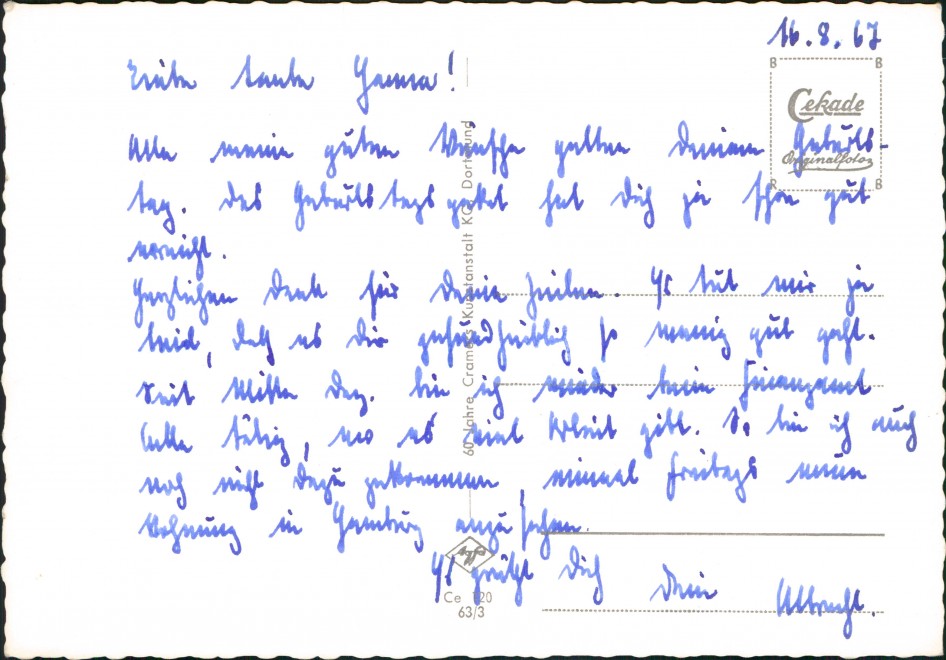 16.8.67
Liebe Tante Hanna!
Cekade
Originalfoto
Alle meine guten Wünsche gelten Deinem Geburts-
tag. Das Geburtstagspaket hat Dich ja schon gut
erreicht.
Herzlichen Dank für Deine Zeilen. Es tut mir ja
leid, daß es Dir gesundheitlich so wenig gut geht.
Seit Mitte Dez. bin ich wieder beim Finanzamt
tätig, wo es viel Arbeit gibt. So bin ich auch
noch nicht dazu gekommen einmal Freitags
Wohnung in Hamburg anzusehen.
Es grüßt Dich Dein Albrecht.
60 Jahre Cramers Kunstanstalt KG, Dortmund
Agfa
Ce 120
63/3